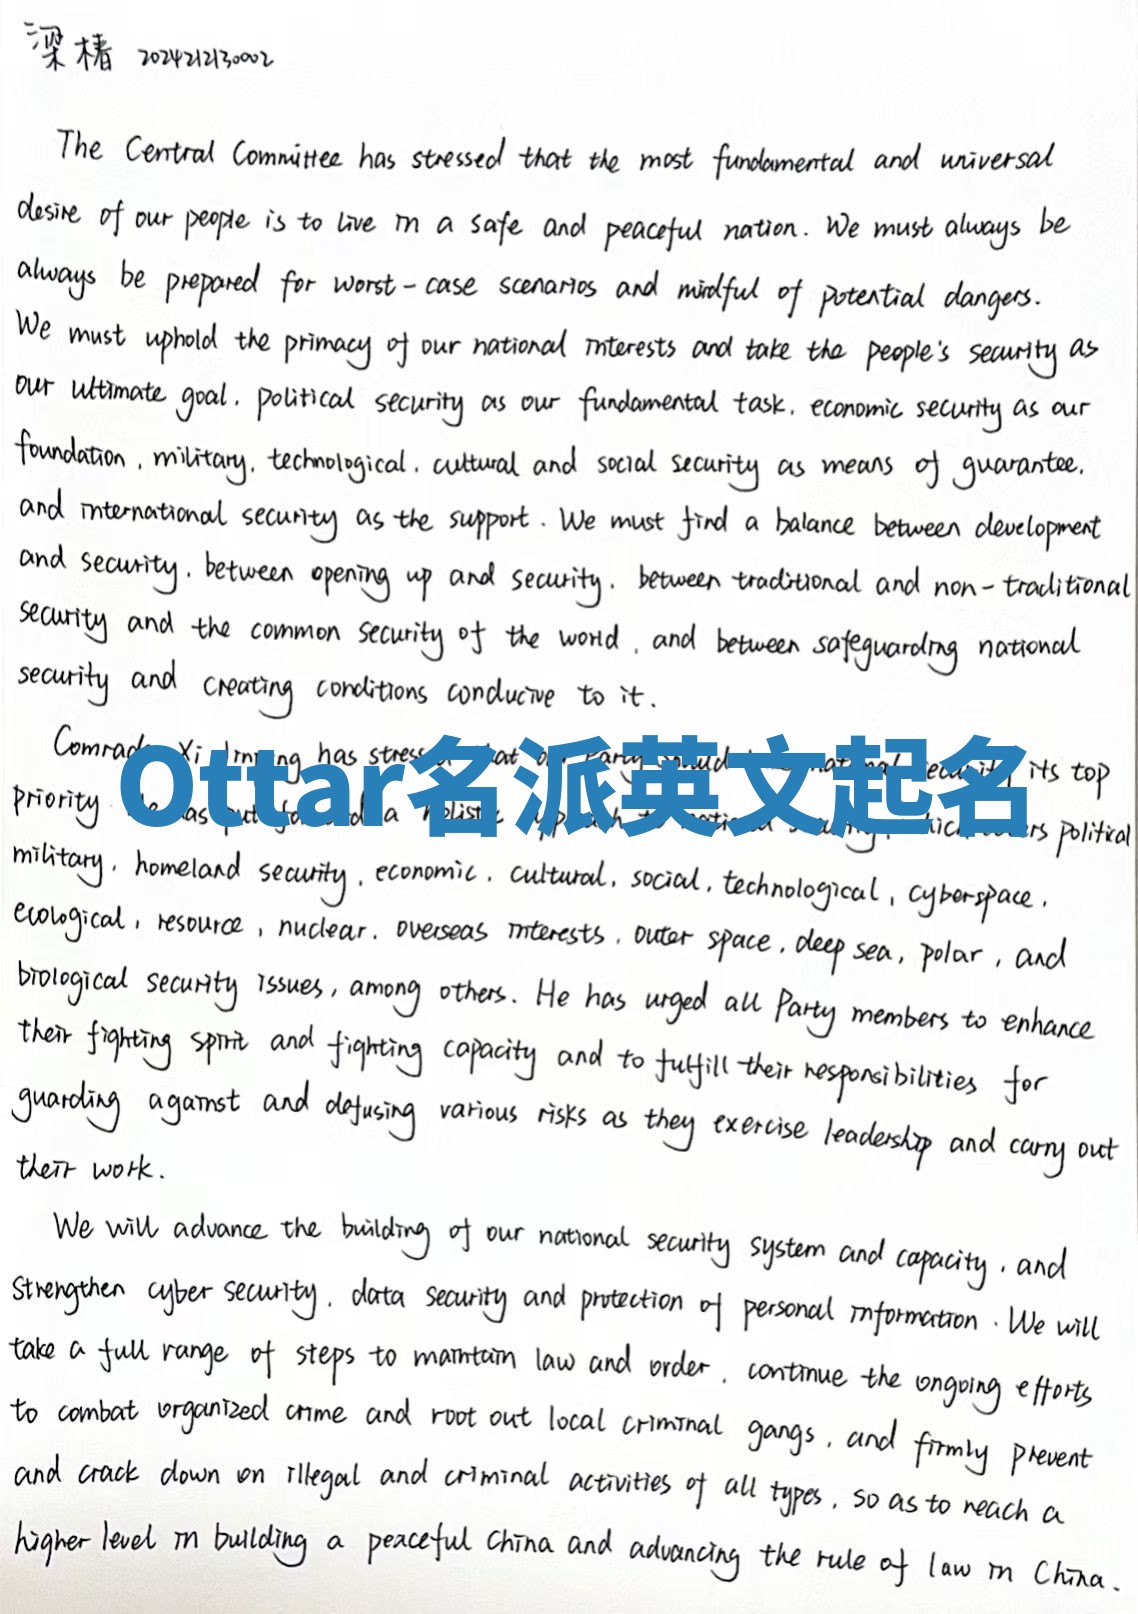 梁椿 2024212130002
The Central Committee has stressed that the most fundamental and universal
desire of our people is to live in a safe and peaceful nation. We must always be
always be prepared for worst-case scenarios and mindful of potential dangers.
We must uphold the primacy of our national interests and take the people's security as
our ultimate goal, political security as our fundamental task, economic security as our
foundation, military, technological, cultural and social security as means of guarantee,
and international security as the support. We must find a balance between development
and security, between opening up and security, between traditional and non-traditional
security and the common security of the world, and between safeguarding national
security and creating conditions conducive to it.
Comrade Xi Jinping has stressed that our Party should national security its top
Ottar名派英文起名
priority He has put forward a holistic approach to national security, which covers political
military, homeland security, economic, cultural, social, technological, cyberspace,
ecological, resource, nuclear, overseas interests, outer space, deep sea, polar, and
biological security issues, among others. He has urged all Party members to enhance
their fighting spirit and fighting capacity and to fulfill their responsibilities for
guarding against and defusing various risks as they exercise leadership and carry out
their work.
We will advance the building of our national security system and capacity, and
strengthen cyber security, data security and protection of personal information. We will
take a full range of steps to maintain law and order, continue the ongoing efforts
to combat organized crime and root out local criminal gangs, and firmly prevent
and crack down on illegal and criminal activities of all types, so as to reach a
higher level in building a peaceful China and advancing the rule of law in China.